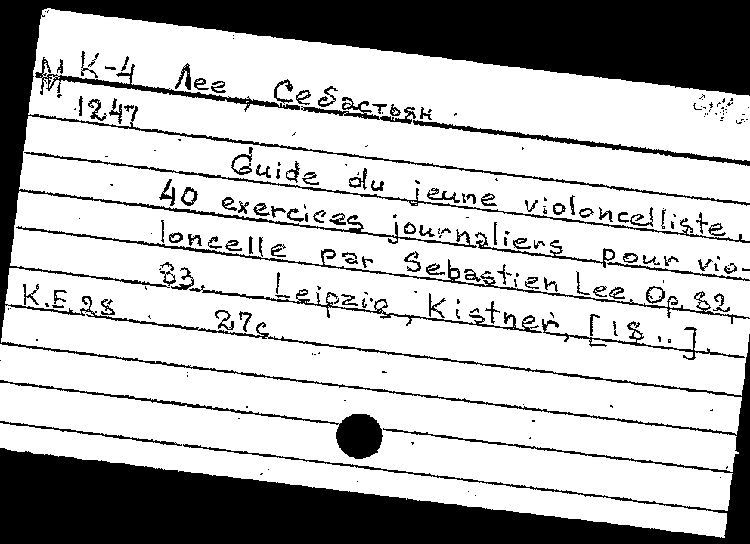 М К-4 Лее, Себастьян.
1247
Guide du jeune violoncelliste.
40 exercices journaliers pour vio-
loncelle par Sebastien Lee. Op. 82,
83. Leipzig, Kistner, [18..].
K.E.28 27c.